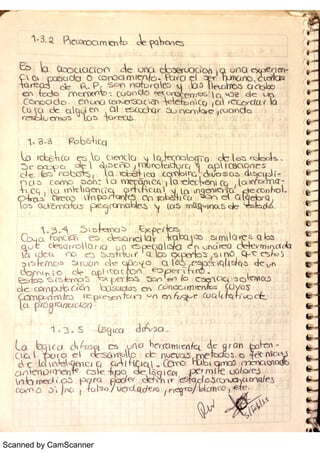 1.3.2 Reconocimiento de patrones
Es la asociación de una observación a una experien-
cia pasada o conocimiento. Para el ser humano, ciertas
tareas de R.P. son naturales y las llevamos a cabo
en todo momento: cuando reconocemos la voz de un
conocido en una conversación telefónica, al recordar la
cara de alguien al escuchar su nombre, cuando
resolvemos las tareas.
1.3.3 Robótica
La robótica es la ciencia y la tecnología de los robots.
Se ocupa del diseño, manufactura y aplicaciones
de los robots, la robótica combina diversas discipli-
nas como son: la mecánica, la electrónica, la informa-
tica, la inteligencia artificial y la ingeniería de control.
Otras áreas importantes en robótica son el algebra,
los autómatas programables y las máquinas de estado.
1.3.4 Sistemas Expertos
Cuya función es desarrollar trabajos similares a los
que desarrollaría un especialista en un área determinada
la idea no es sustituir a los expertos, sino que estos
sistemas sirvan de apoyo a los especialistas de un
dominio de aplicación especifico.
Estos sistemas expertos son en lo esencia sistemas
de computación basados en conocimientos cuyos
componentes representan un enfoque cualitativo de
la programación.
1.3.5 Lógica difusa.
La lógica difusa es una herramienta de gran poten-
cial para el desarrollo de nuevos metodos o técnicas
de la inteligencia artificial. Como habiamos mencionado
anteriormente este tipo de lógica permite valores
intermedios para poder definir estados convencionales
como si/no, falso/verdadero, negro/blanco, etc.
Scanned by CamScanner